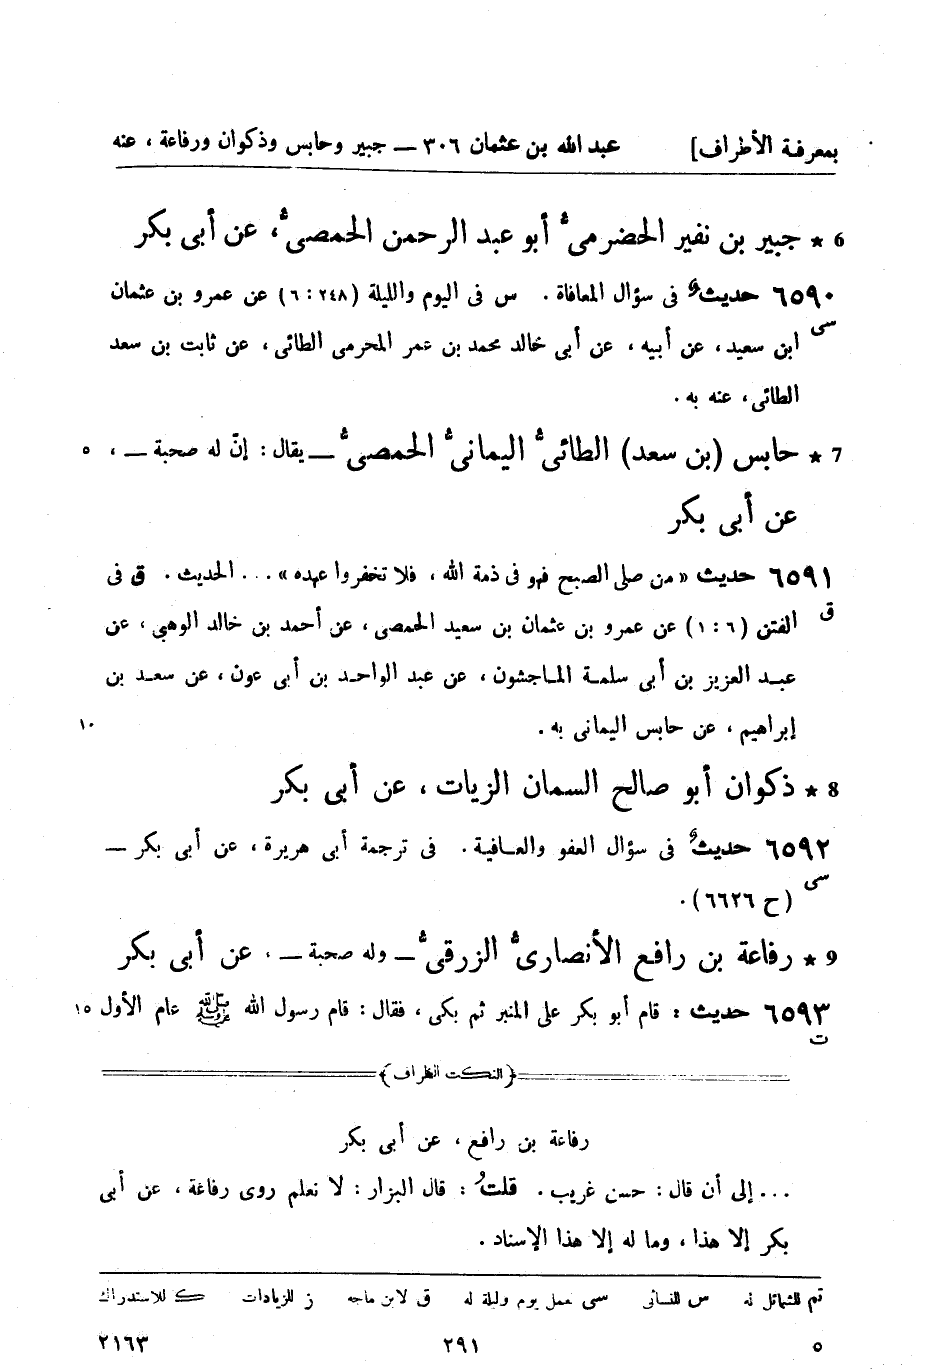 بمعرفة الأطراف] عبد الله بن عثمان ٣٠٦ ــ جبير وحابس وذكوان ورفاعة ، عنه
6 ★ جبير بن نفير الحضرمىُّ أبو عبد الرحمن الحمصىُّ، عن أبى بكر
٦٥٩٠ حديثٌ فى سؤال المعافاة . س فى اليوم والليلة (٢٤٨ : ٦) عن عمرو بن عثمان
سى
ابن سعيد، عن أبيه ، عن أبى خالد محمد بن عمر المحرمى الطائى ، عن ثابت بن سعد
الطائى، عنه به .
7 ★ حابس (بن سعد) الطائىُّ اليمانىُّ الحمصىُّ ــ يقال : إنّ له صحبة ــ ، ٥
عن أبى بكر
٦٥٩١ حديث « من صلى الصبح فهو فى ذمة الله ، فلا تخفروا عهده » ... الحديث . ق فى
ق
الفتن (٦ : ١) عن عمرو بن عثمان بن سعيد الحمصى ، عن أحمد بن خالد الوهبى ، عن
عبد العزيز بن أبى سلمة الماجشون ، عن عبد الواحد بن أبى عون ، عن سعد بن
إبراهيم ، عن حابس اليمانى به . ١٠
8 ★ ذكوان أبو صالح السمان الزيات ، عن أبى بكر
٦٥٩٢ حديثٌ فى سؤال العفو والعافية . فى ترجمة أبى هريرة ، عن أبى بكر ــ
سى
(ح ٦٦٢٦) .
9 ★ رفاعة بن رافع الأنصارىُّ الزرقىُّ ــ وله صحبة ــ ، عن أبى بكر
٦٥٩٣ حديث : قام أبو بكر على المنبر ثم بكى ، فقال : قام رسول الله ﷺ عام الأول ١٥
ت
﴿النكت الظراف﴾
رفاعة بن رافع ، عن أبى بكر
... إلى أن قال : حسن غريب . قلتُ : قال البزار : لا نعلم روى رفاعة ، عن أبى
بكر إلا هذا ، وما له إلا هذا الإسناد .
تم للشمائل له س للنسائى سى عمل يوم وليلة له ق لابن ماجه ز للزيادات ك للاستدراك
٥ ٢٩١ ٢١٦٣